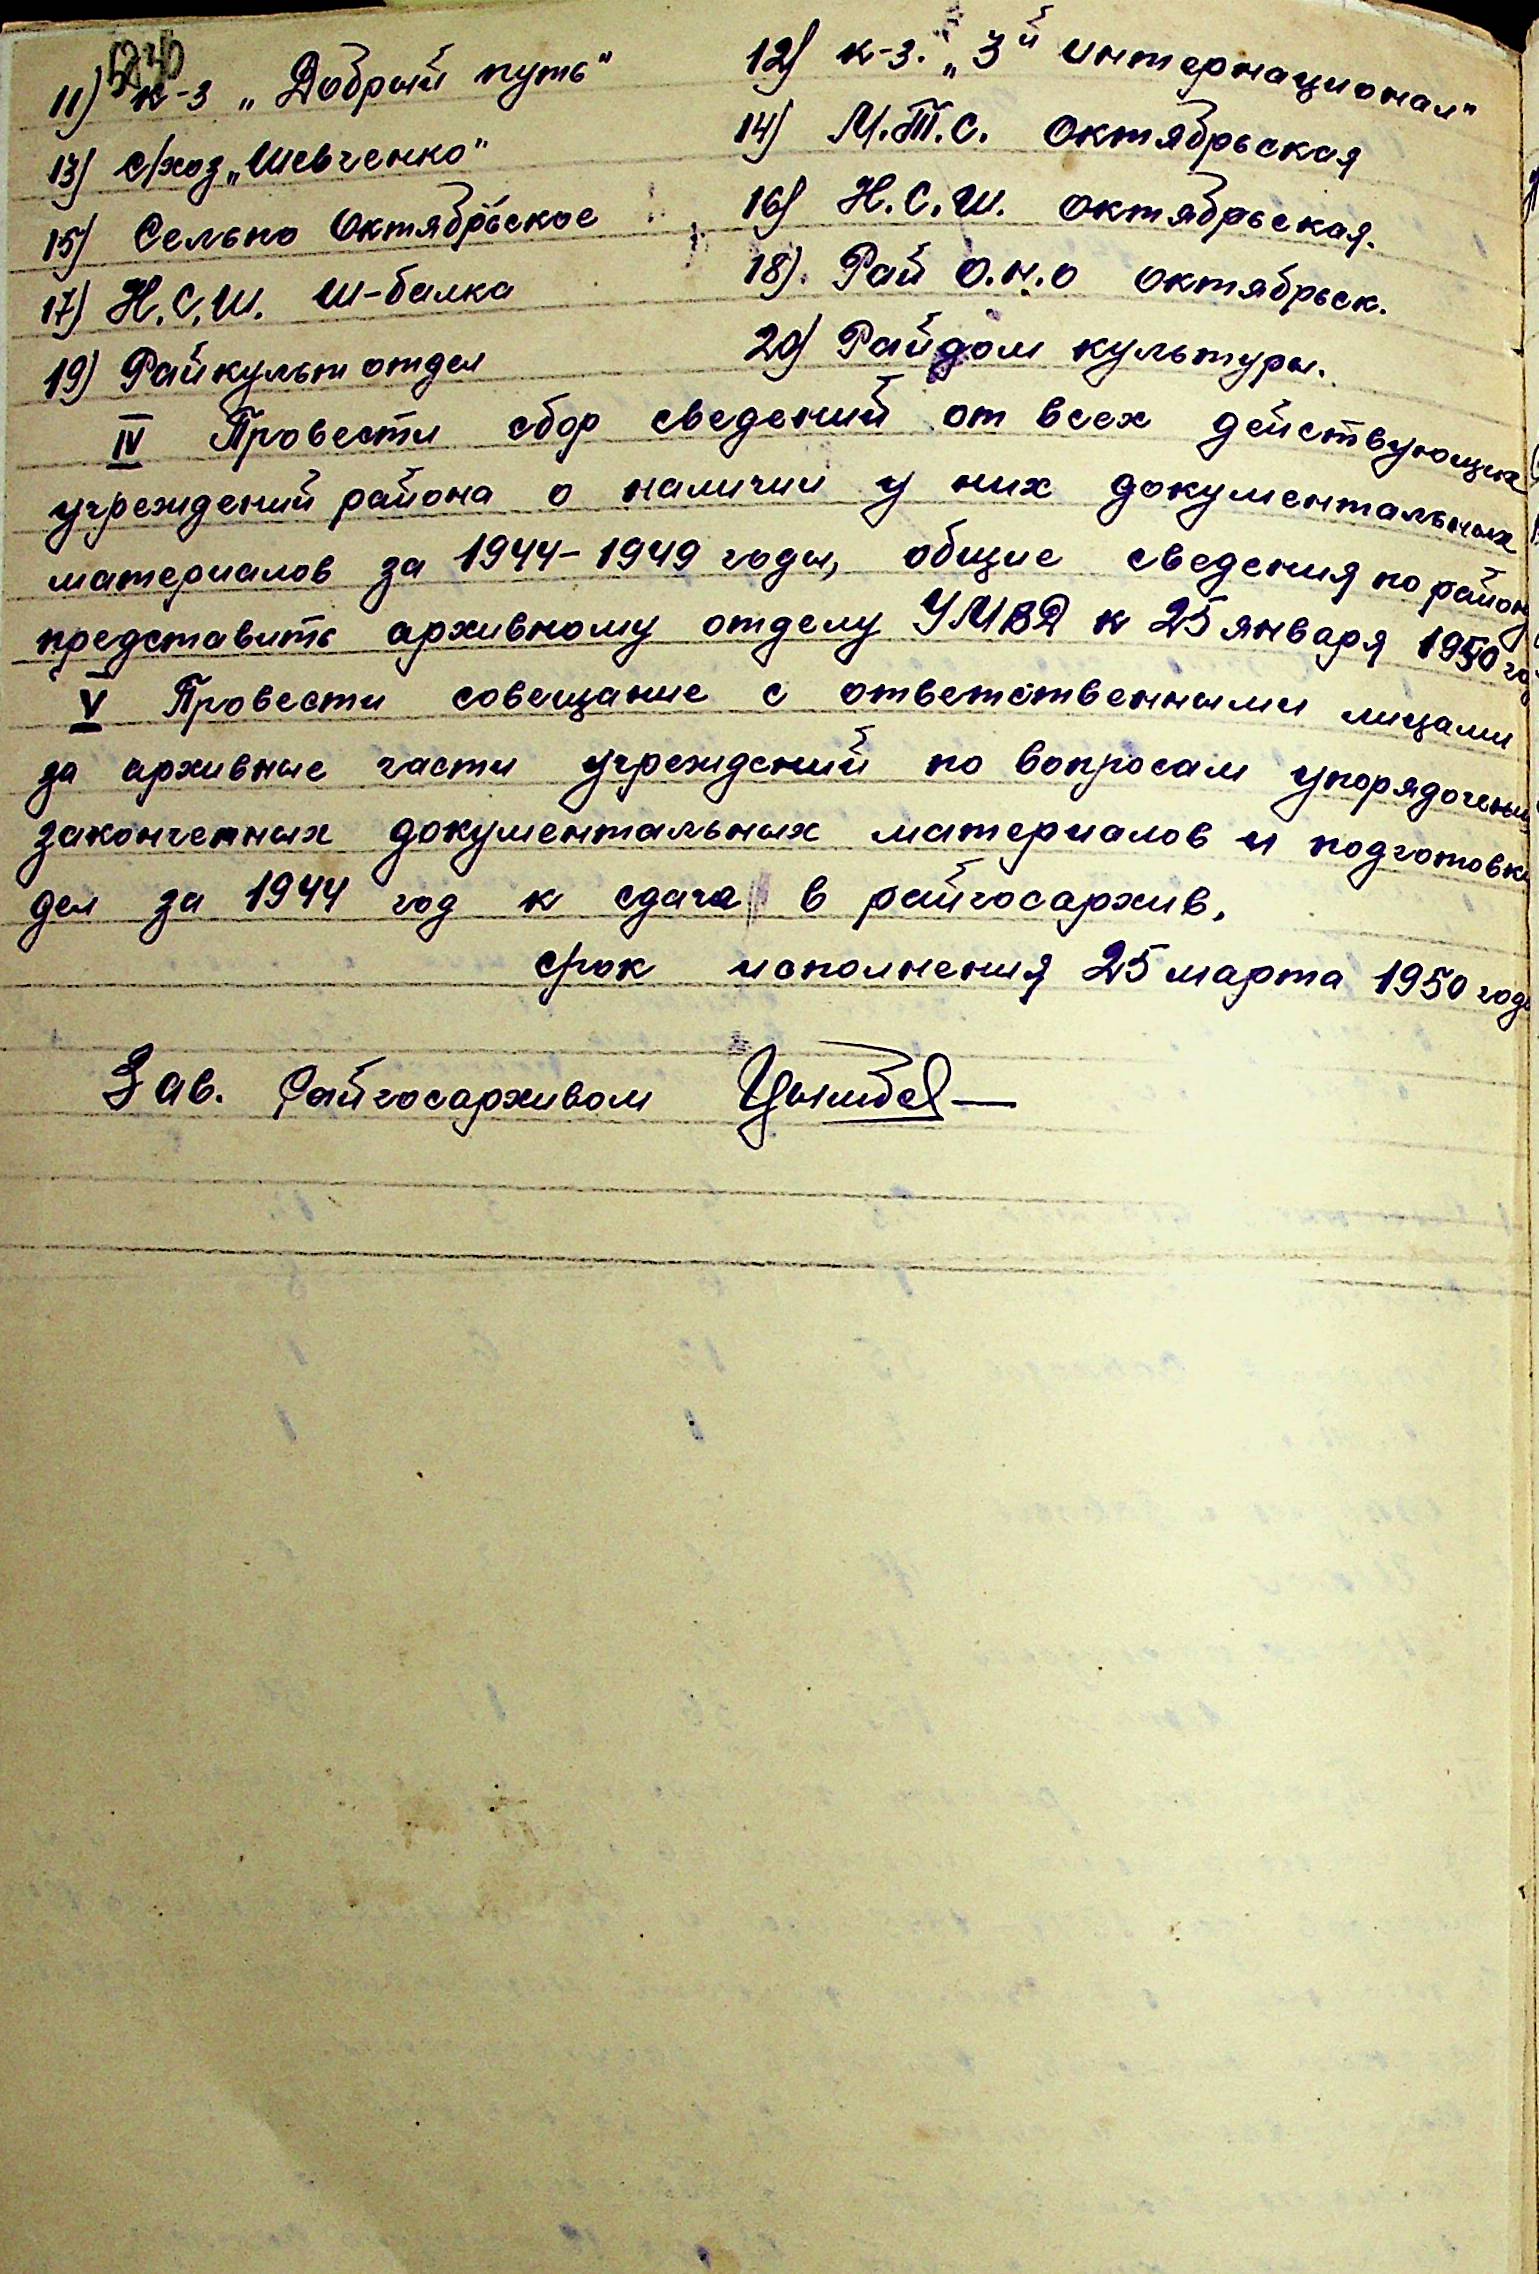 11) к-з „Добрый путь" 12) к-з. „3й интернационал"
13) с/хоз „Шевченко" 14) М.Т.С. Октябрьская
15) Сельпо Октябрьское 16) Н.С.Ш. октябрьская.
17) Н.С.Ш. Ш-балка 18). Рай О.Н.О октябрьск.
19) Райкультотдел 20) Райдом культуры.
IV Провести сбор сведений от всех действующих
учреждений района о наличии у них документальных
материалов за 1944-1949 годы, общие сведения по району
представить архивному отделу УМВД к 25 января 1950 год
V Провести совещание с ответственными лицами
за архивные части учреждений по вопросам упорядочения
законченных документальных материалов и подготовки
дел за 1944 год к сдаче в райгосархив.
срок исполнения 25 марта 1950 года
Зав. Райгосархивом